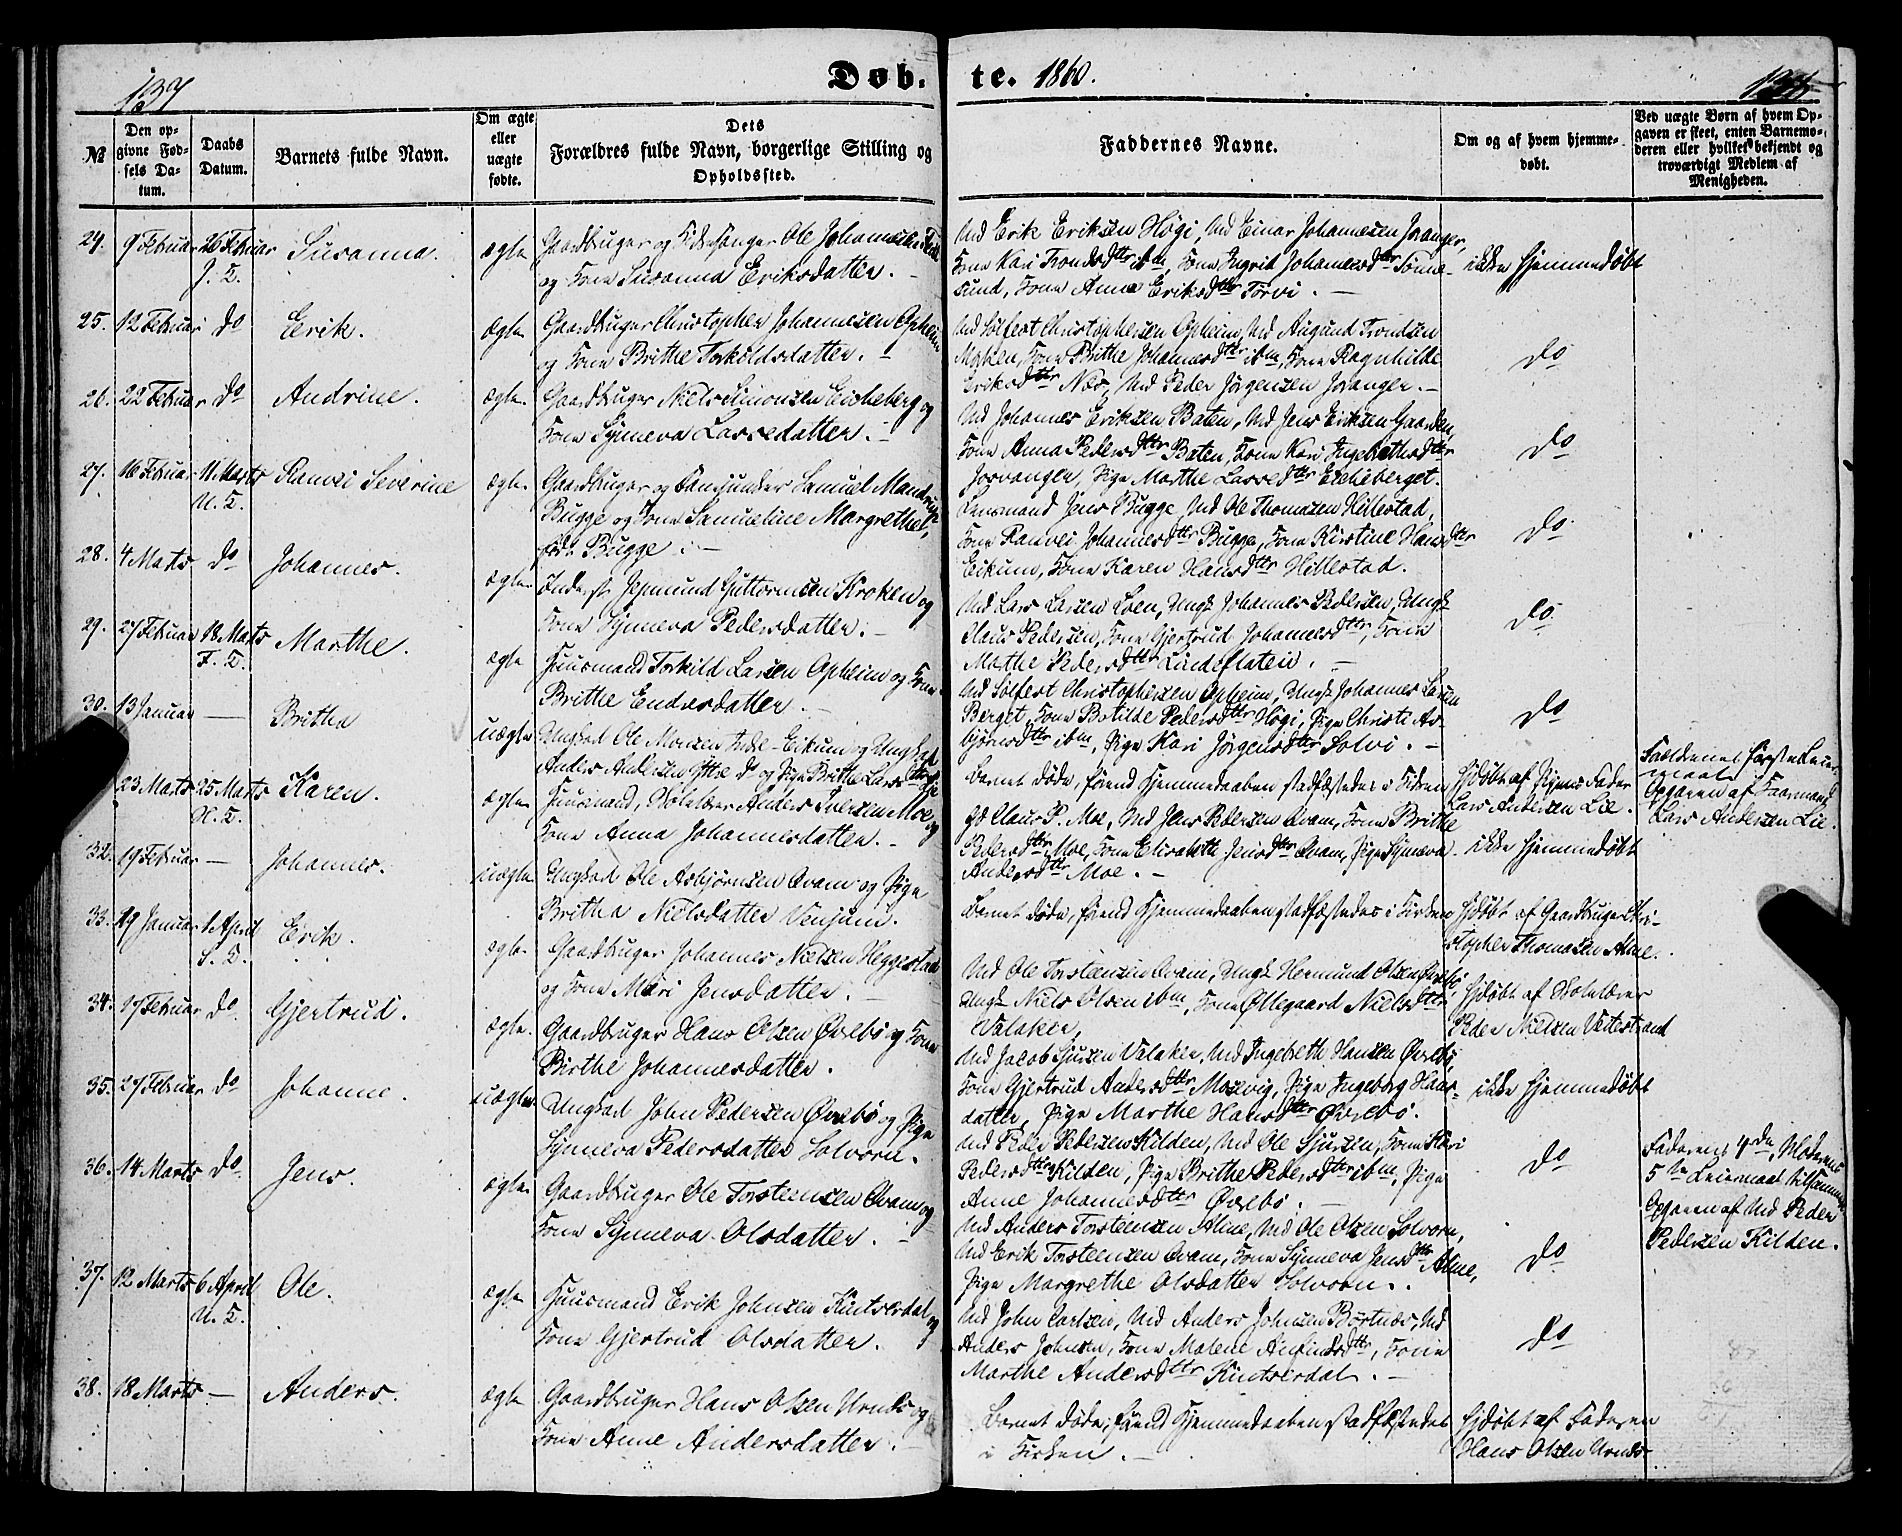 137
Døb-te. 1860.
№
Den opgivne Fødsels Datum.
Daabs Datum.
Barnets fulde Navn.
Om ægte eller uægte fødte.
Dets Forældres fulde Navn, borgerlige Stilling og Opholdssted.
Faddernes Navne.
Om og af hvem hjemmedøbt.
Ved uægte Børn af hvem Opgaven er skeet, enten Barnemoderen eller hvilket bekjendt og troværdigt Medlem af Menigheden.
24. 9 Februar 26 Februar Susanna. ægte
Gaardbruger og Kirkesanger Ole Johannesen
og Kone Susanna Eriksdatter. -
Md Erik Eriksen Høgi, Md Einar Johannesen Joranger,
Kone Kari Trondsdttr ibm, Kone Ingrid Johannesdttr Sønne-
sund, Kone Anna Eriksdttr Torvi. -
ikke hjemmedøbt
25. 12 Februar do Erik. ægte
Gaardbruger Christopher Johannesen Opheim
og Kone Brithe Torkildsdatter. -
Md Solfest Christophersen Opheim, Md Augund Trondsen
Moken, Kone Brithe Johannesdttr ibm, Kone Ragnhilde
Eriksdttr Næs, Md Peder Jørgensen Joranger. -
do
26. 22 Februar do Andrine. ægte
Gaardbruger Niels Simonsen Eicheberg og
Kone Synneva Lassedatter. -
Md Johannes Eriksen Baten, Md Jens Eriksen Gaarden,
Kone Anna Pedersdttr Baten, Kone Kari Ingebrethsdttr
Jorvanger, Pige Marthe Lassedttr Eicheberget.
do
27. 16 Februar 11 Marts Ranvei Severine ægte
Gaardbruger og Landjunker Samuel Mandrup
Bugge og Kone Samueline Margrethe,
fød. Bugge. -
Lensmand Jens Bugge, Md Ole Thomasen Hillestad,
Kone Ranvei Johannesdttr Bugge, Kone Kirstine Hansdttr
Eikum, Kone Karen Hansdttr Hillestad.
do
28. 4 Marts do Johannes. ægte
Inderst Jermund Guttormsen Kroken og
Kone Synneva Pedersdatter. -
Md Lars Larsen Loen, Ungk Johannes Pedersen, Ungk
Claus Pedersen, Kone Gjertrud Johannesdttr, Kone
Mathe Pedersdttr Lindeflaten. -
do
29. 27 Februar 18 Marts Marthe. ægte
Huusmand Torkild Larsen Opheim og Kone
Brithe Endresdatter. -
Md Solfest Christophersen Opheim, Ungk Johannes Larsen
Berget, Kone Botilde Pedersdttr Høgi, Pige Christi As-
bjørnsdttr ibm, Pige Kari Jørgensdttr Solvi. -
do
30. 13 Januar — Britha uægte
Ungkarl Ole Monsen Indre-Eikum og Ungkarl
Anders Andersen Yttre do og Pige Brithe Larsdttr Lie
Barnet døde, førend Hjemmedaaben stadfæstedes i Kirken
Hjdøbt af Pigens Fader
Lars Andersen Lie.
Forældrenes første Leier-
maal
Opgaven af Formand
Lars Andersen Lie.
23 Marts 25 Marts Karen. ægte
Huusmand, Skolelærer Anders Iversen Moe og
Kone Anna Johannesdatter. -
Gd Claus P. Moe, Md Jens Pedersen Qvam, Kone Brithe
Pedersdttr Moe, Kone Elisabeth Jensdttr Qvam, Pige Synneva
Andersdttr Moe. -
ikke hjemmedøbt
32. 19 Februar — Johannes. uægte
Ungkarl Ole Asbjørnsen Qvam og Pige
Britha Nielsdatter Venjum.
Barnet døde, førend Hjemmedaaben stadfæstedes i Kirken
Hjdøbt af Gaardbruger Chri-
stopher Thomasen Alme.
33. 19 Januar 1 April Erik. ægte
Gaardbruger Johannes Nielsen Heggestad
og Kone Mari Jensdatter. -
Md Ole Torsteinsen Qvam, Ungk Hermund Olsen Øvrebø,
Ungk Niels Olsen ibm, Kone Øllegaard Nielsdttr
Valaker,
Hjdøbt af Skolelærer
Peder Nielsen Vetestrand
34. 17 Februar do Gjertrud. ægte
Gaardbruger Hans Olsen Øvrebø og Kone
Birthe Johannesdatter.
Md Jacob Sjursen Valaker, Md Ingebreth Hansen Øvrebø,
Kone Gjertrud Andersdttr Molvig, Pige Ingeborg Hans-
datter, Pige Marthe Hansdttr Øvrebø.
ikke hjemmedøbt
35. 27 Februar do Johanne. uægte
Ungkarl John Pedersen Øvrebø og Pige
Synneva Pedersdatter Solvorn.
Md Peder Pedersen Kilden, Md Ole Sjursen, Kone Kari
Pedersdttr Kilden, Pige Brithe Pedersdttr ibm, Pige
Anne Johannesdttr Øvrebø. -
do
Faderens 4de, Moderens
5te Leiermaal tilsammen
Opgaven af Md Peder
Pedersen Kilden.
36. 14 Marts do Jens. ægte
Gaardbruger Ole Torsteensen Qvam og
Kone Synneva Olsdatter. -
Md Anders Torsteensen Alme, Md Ole Olsen Solvorn,
Md Erik Torsteensen Qvam, Kone Synneva Jensdttr Alme,
Pige Margrethe Olsdatter Solvorn.
do
37. 12 Marts 6 April Ole. ægte
Huusmand Erik Johnsen Kintserdal og
Kone Gjertrud Olsdatter.
Md John Carlsen, Md Anders Johnsen Børtnæs, Md
Anders Johnsen, Kone Malene Anfindsdttr, Kone
Marthe Andersdttr Kintserdal. -
do
38. 18 Marts — Anders. ægte
Gaardbruger Hans Olsen Urnæs og
Kone Anne Andersdatter. -
Barnet døde, førend Hjemmedaaben stadfæstedes
i Kirken. -
Hjdøbt af Faderen
Hans Olsen Urnæs